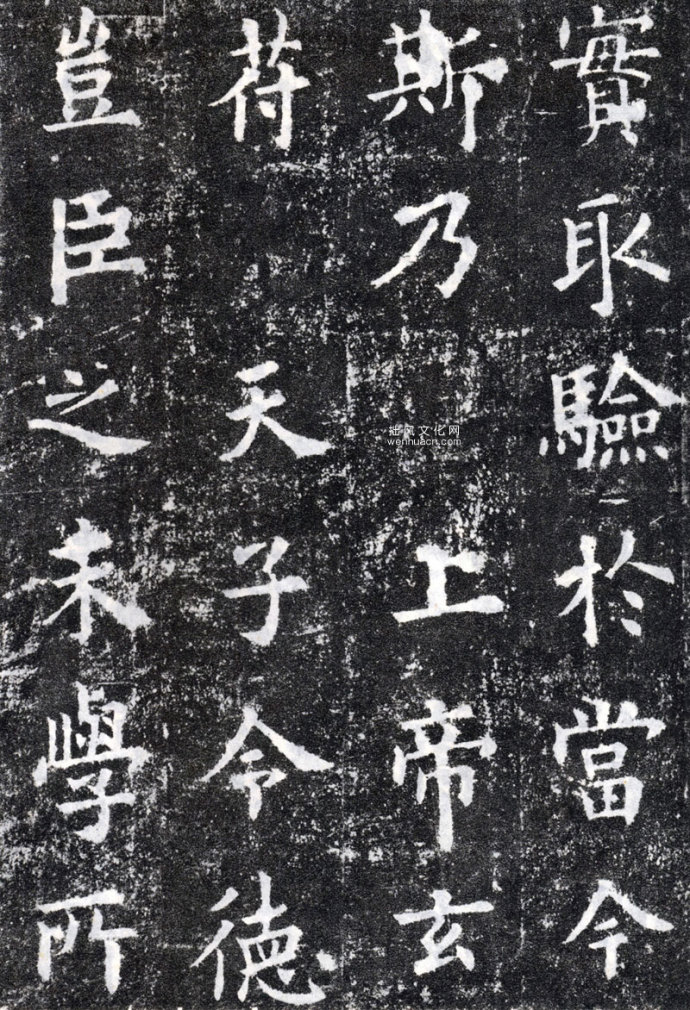 實取驗於當今
斯乃上帝玄
苻天子令德
豈臣之末學所
紙风文化网
wenhuacn.com